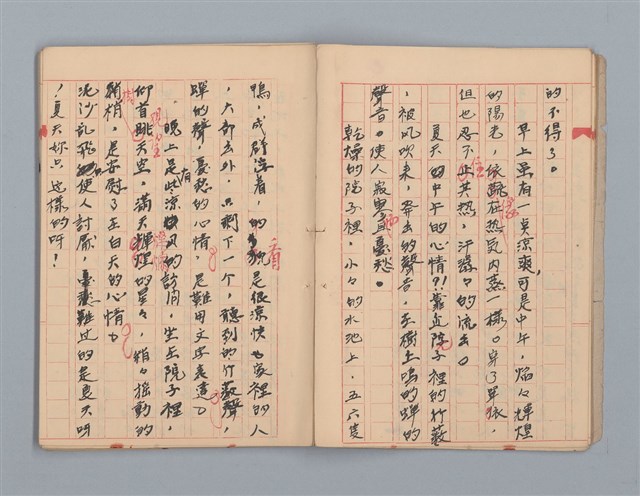 的不得了。
早上虽有一點涼爽，可是中午，焰々輝煌
的陽光，依舊在热気内蒸一樣。穿了單衣，
但也忍不住其热，汗滌々的流出。
夏天的中午的心情?!靠近院子裡的竹藪
，被风吹来，發出的聲音，在樹上鳴的蟬的
聲音。使人寂寞與憂愁。
乾燥的院子裡，小々的水池上，五六隻
鴨，成群游着，的是很涼快。家裡的人
，大都去外，只剩下一个，聽到的竹藪聲，
蟬的聲，憂愁的心情，是難用文字表達。
晚上是有些涼风的訪问，坐在院子裡，
仰首眺天空，滿天輝煌的星々，稍々搖動的
稍梢，是安慰了在白天的心情。
泥沙乱飛，使人討厭，難过的是夏天呀
！夏天妳只这樣的呀！